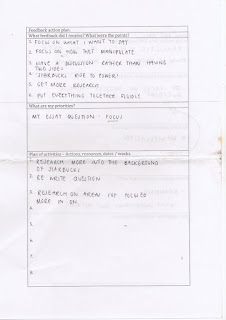 Feedback action plan
What feedback did I receive? What were the points?
1. FOCUS ON WHAT I WANT TO SAY
2. FOCUS ON HOW THEY MANIPULATE
3. HAVE A QUESTION RATHER THAN HAVING
TWO SIDES
4. STARBUCKS RISE TO POWER!
5. GET MORE RESEARCH
6. PUT EVERYTHING TOGETHER FLUIDLY
What are my priorities?
MY ESSAY QUESTION - FOCUS
Plan of activities – Actions, resources, dates / weeks.
1. RESEARCH MORE INTO THE BACKGROUND
OF STARBUCKS
2. RE WRITE QUESTION
3. RESEARCH ON AREAS I'VE FOCUSED
MORE IN ON.
4.
5.
6.
7.
8.